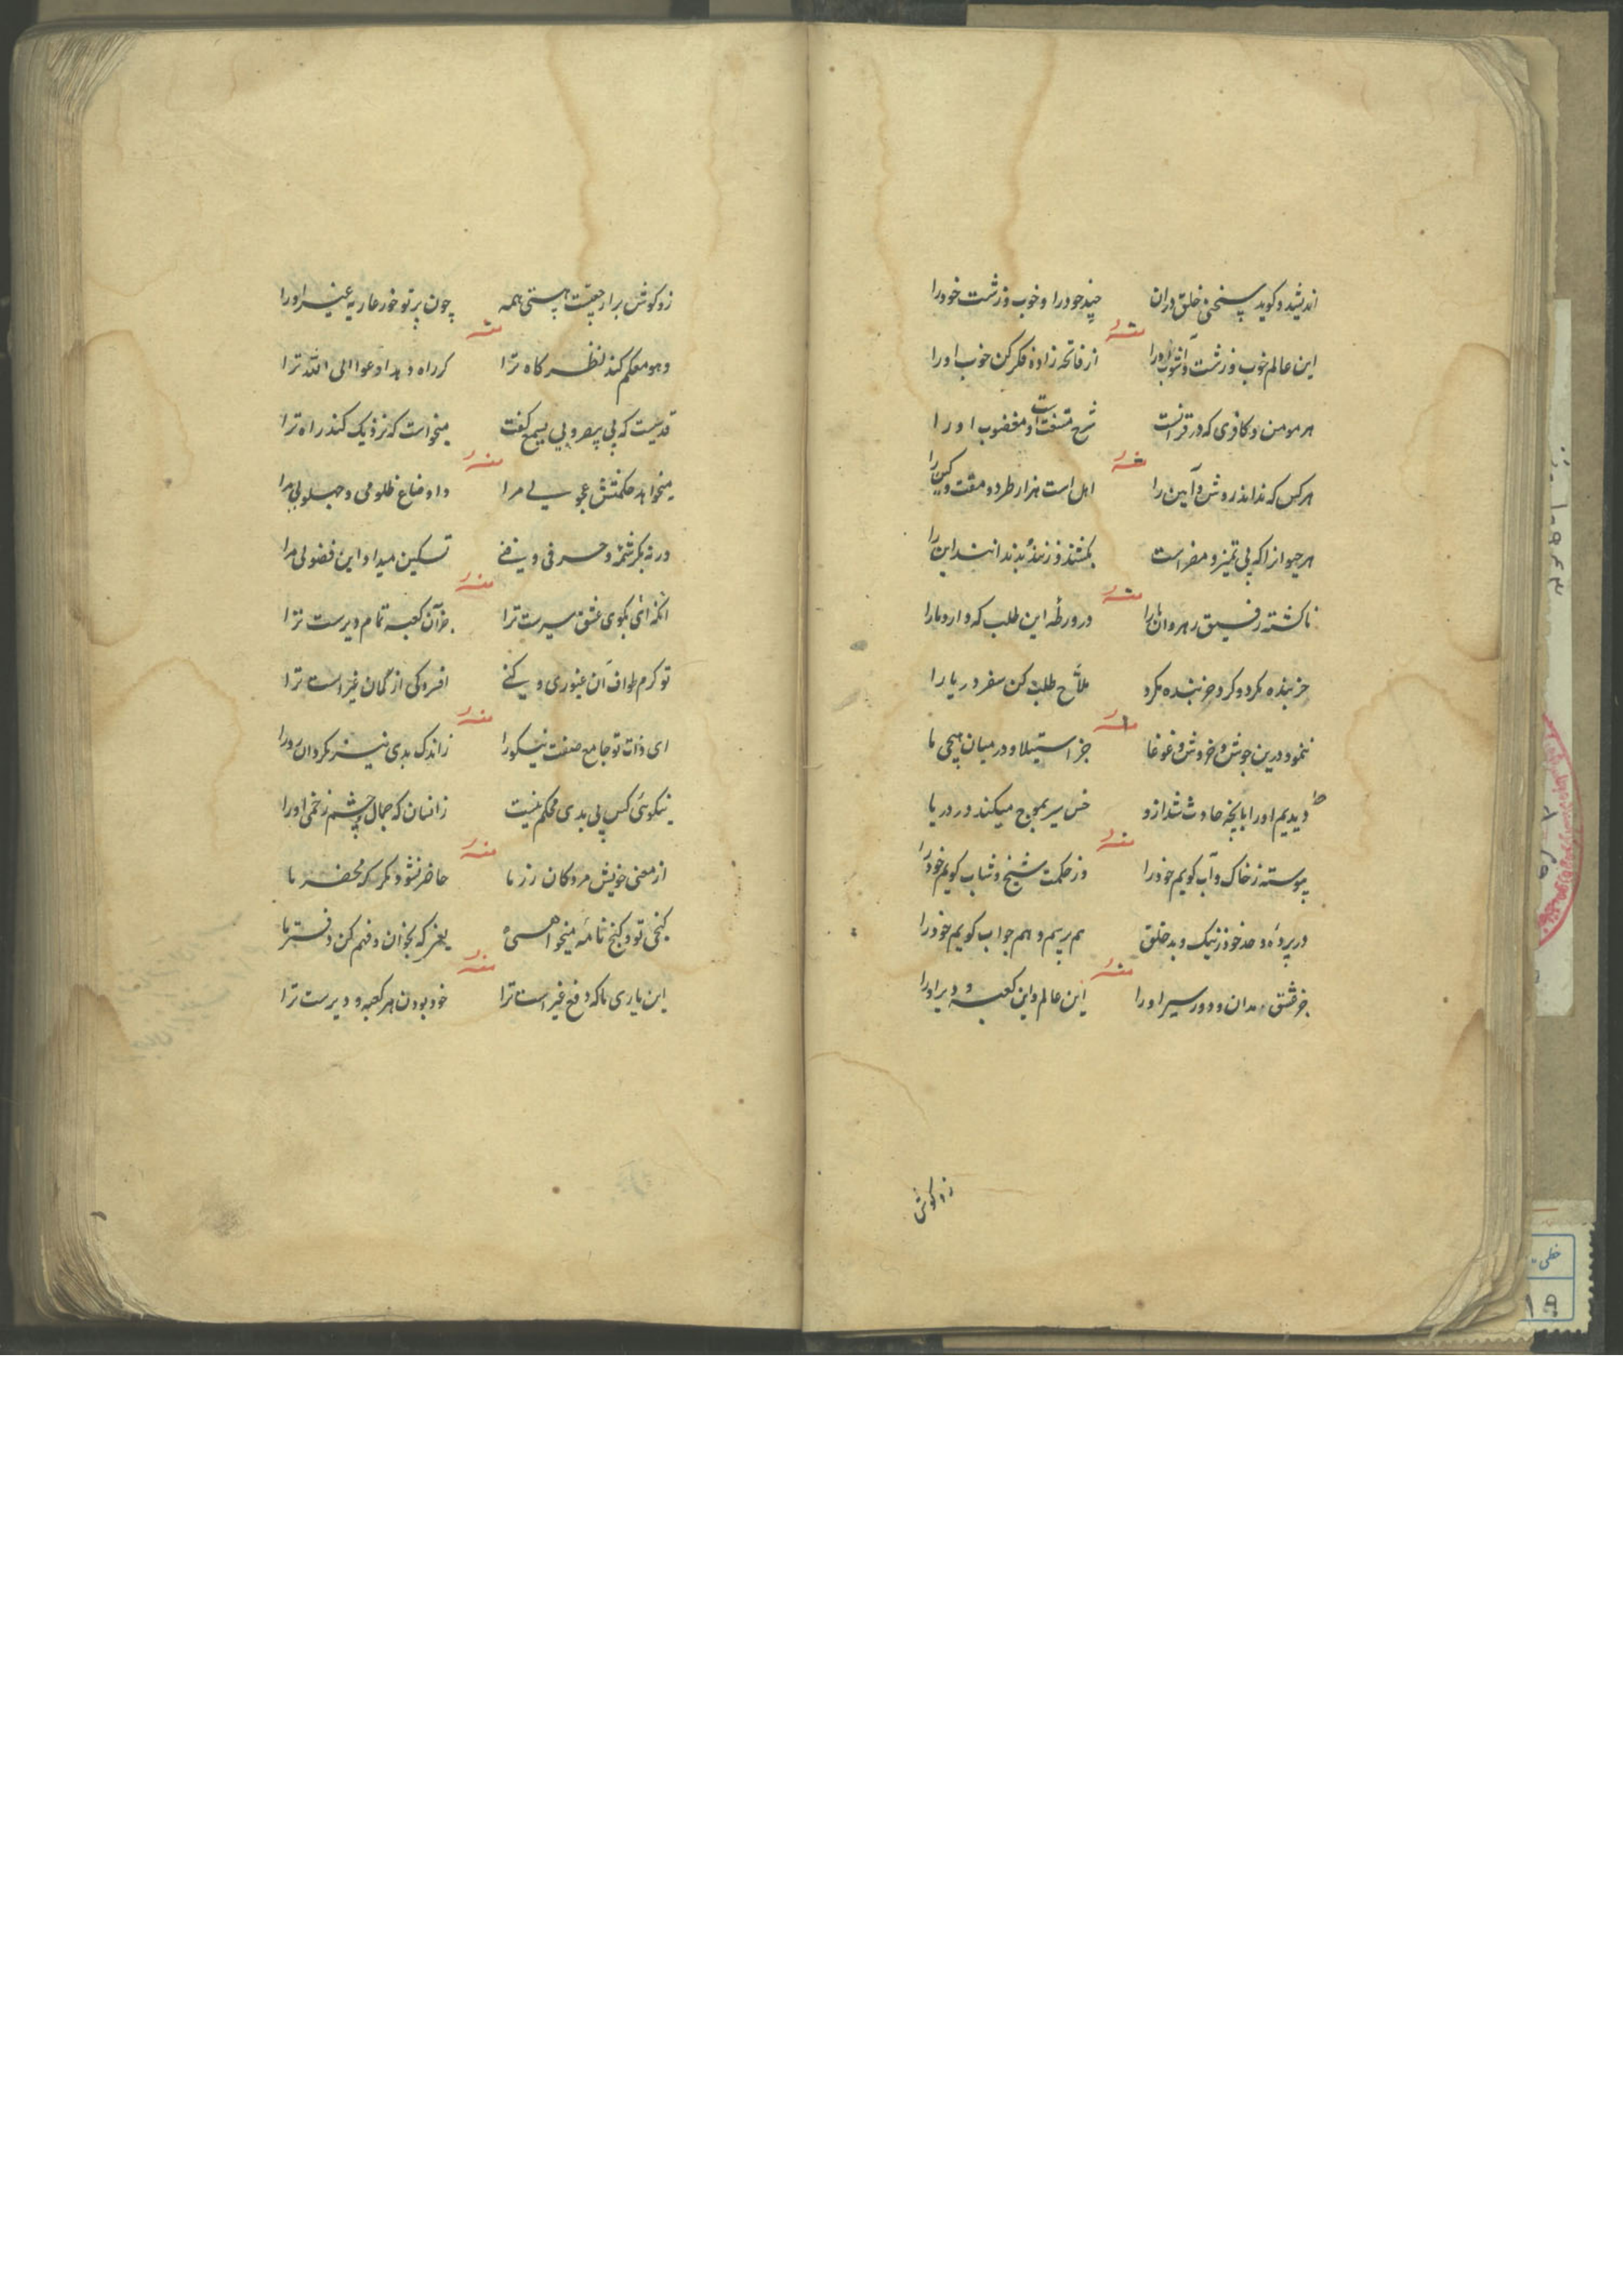 اندیشد و کوید سخن خلق دران چند خود را و خوب و زشت خود را
منه
این عالم خوب و زشت و آشوب او را از فاتحه زاده فکر کن خوب او را
هر مومن و کافری که در قرآنست شرح متنعمست و مغضوب او را
منه
هر کس که نداند روش و آیین را اهل است هزار طرد و مقت و کین را
هر حیوانرا که بی تمیز و مضر است بکشند و زنند بند این را
منه
ناکشته رفیق رهروان را در ورطه این طلب که دارد ما را
جز بنده نکرد و کرد جز بنده نکرد ملاح طلب کن سفر دریا را
منه
ننمود درین جوش و خروش و غوغا جز استیلا و در میان هیچی ما
دیدیم او را بانچه حادث شد ازو خس سیر بموج میکند در دریا
منه
پیوسته ز خاک و آب کویم خود را وز حکمت شیخ و شاب کویم خود را
در پرده صد خود ز نیک و بد خلق هم پرسم و هم جواب کویم خود را
منه
جز عشق مدان و دور سیر او را این عالم و این کعبه و دیر او را
زو کوش
زو کوش برادر حقیقت هستی همه چون پرتو خور عاریه غیر او را
منه
و هو معکم کند نظر کاه ترا کر راه دهد ادعوا الی الله ترا
قدیست که بی یبصر و بی یسمع کفت میخواست که نزدیک کند راه ترا
منه
میخواهد حکمتش عجولی مرا و اوضاع ظلومی و جهولی مرا
ورنه بکرشمه و حرفی و فنی تسکین میداد این فضولی مرا
منه
انکه ای بکوی عشق سیرست ترا جز آن کعبه تمام دیرست ترا
تو کرم طواف آن غیوری و کنی افسردکی از کمان غیر است ترا
منه
ای ذات تو جامع صفت نیکو را ز اندک بدی نیز مکردان رو را
نیکوئی کس بی بدی محکم نیست زانسان که جمال چشم زخمی او را
منه
از معنی خویش مردکان رز ما حاضر نشود مکر که محضر ما
کنجی تو و کنج نامه میخواهی یعنی که بخوان و فهم کن دفتر ما
منه
این یاری ما که دفع غیر است ترا خود بودن هر کعبه و دیرست ترا
خطی